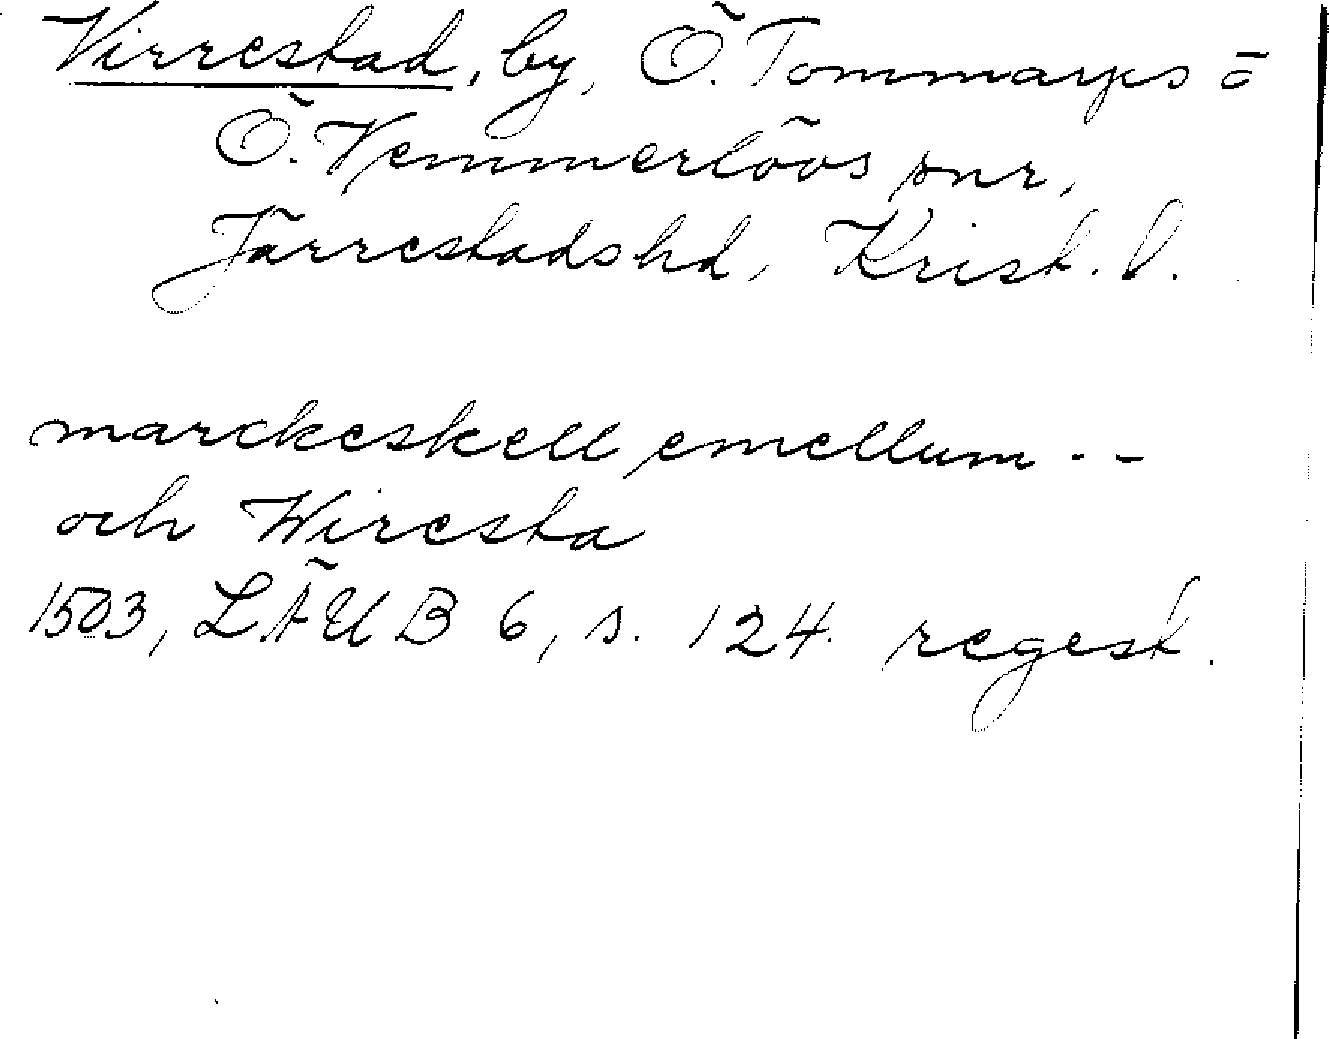 Virrestad, by, Ö. Tommarps o
Ö. Vemmerlövs snr,
Järrestads hd, Krist. l.
marckeskell emellum --
och Wiresta
1503, LÄUB 6, s. 124. regest.